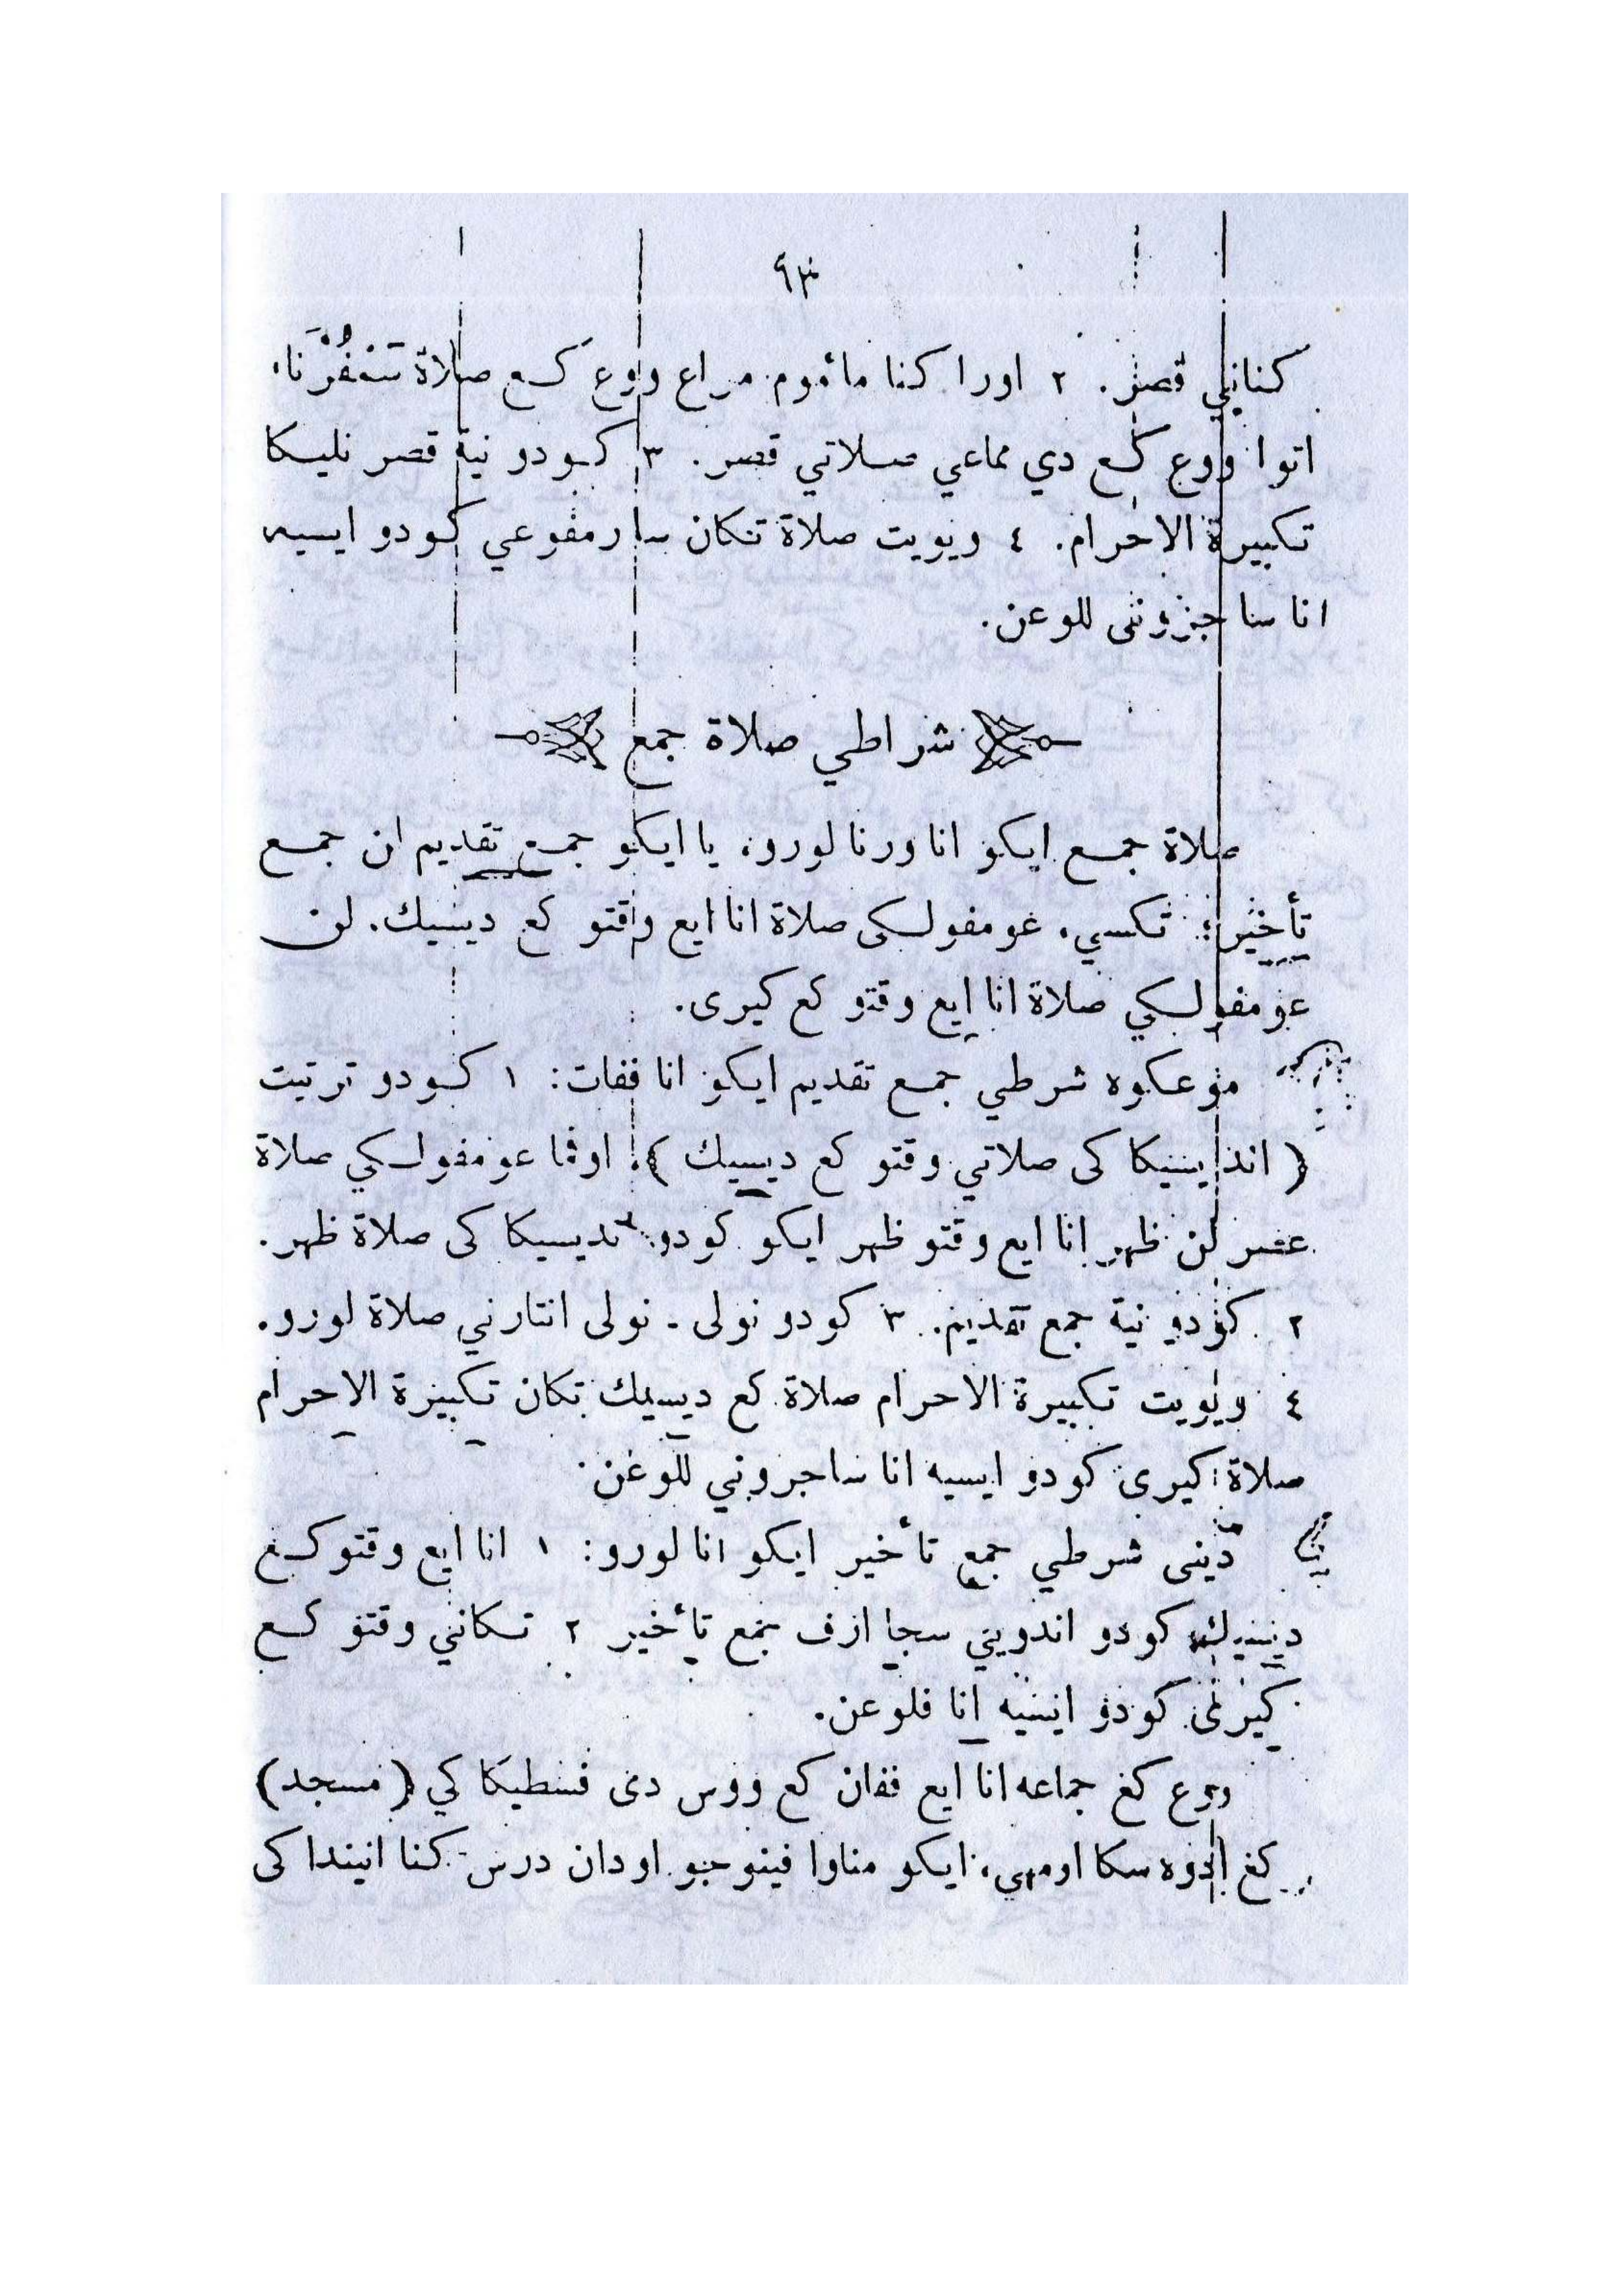 ٩٣
كناني قصر. ٢ اورا كنا مأموم مراع ووع كع صلاة سَمْفُرْنَا،
اتوا ووع كع دي مماعي صلاتي قصر. ٣ كودو نية قصر نليكا
تكبيرة الاحرام. ٤ ويويت صلاة تكان سارمفوعي كودو ايسيه
انا ساجروني للوعن.
شراطي صلاة جمع
صلاة جمع ايكو انا ورنا لورو، يا ايكو جمع تقديم ان جمع
تأخير؛ تكسي. غومفولكى صلاة انا ايع وقتو كع ديسيك. لن
عومفولكي صلاة انا ايع وقتو كع كيرى.
موعكوه شرطي جمع تقديم ايكو انا ففات: ١ كودو ترتيت
( اندييسيكا كى صلاتي وقتو كع ديسيك ). اوفما عومفولكي صلاة
عصر لن ظهر انا ايع وقتو ظهر ايكو كودو نديسيكا كى صلاة ظهر.
٢ كودو نية جمع تقديم. ٣ كودو نولى - نولى انتارني صلاة لورو.
٤ ويويت تكبيرة الاحرام صلاة كع ديسيك تكان تكبيرة الاحرام
صلاة كيرى كودو ايسيه انا ساجروني للوغن.
ديني شرطي جمع تأخير ايكو انا لورو: ١ انا ايع وقتو كغ
ديسيك كودو اندويني سجا ارف جمع تأخير ٢ تكاني وقتو كع
كيرى كودو ايسيه انا فلوعن.
ووع كغ جماعه انا ايع ففان كع ووس دى فسطيكا كي (مسجد)
كغ ادوه سكا اومهي، ايكو مناوا فينوجو اودان درس كنا انيندا كى